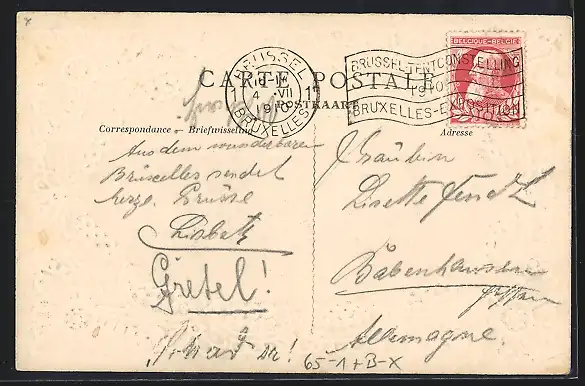 BRUSSEL
10-11
1 4 VII 1
1910
BRUXELLES
BRUSSEL-TENTOONSTELLING
1910
BRUXELLES-EXPOSITION
BELGIQUE-BELGIË
CARTE POSTALE
POSTKAART
Correspondance — Briefwisseling
Adresse
Aus dem wunderbaren
Brüxelles sendet
herzl. Grüsse
Lisbeth
Gretel!
Fräulein
Lisette
Babenhausen
Hessen
Allemagne.
65-1+B-X